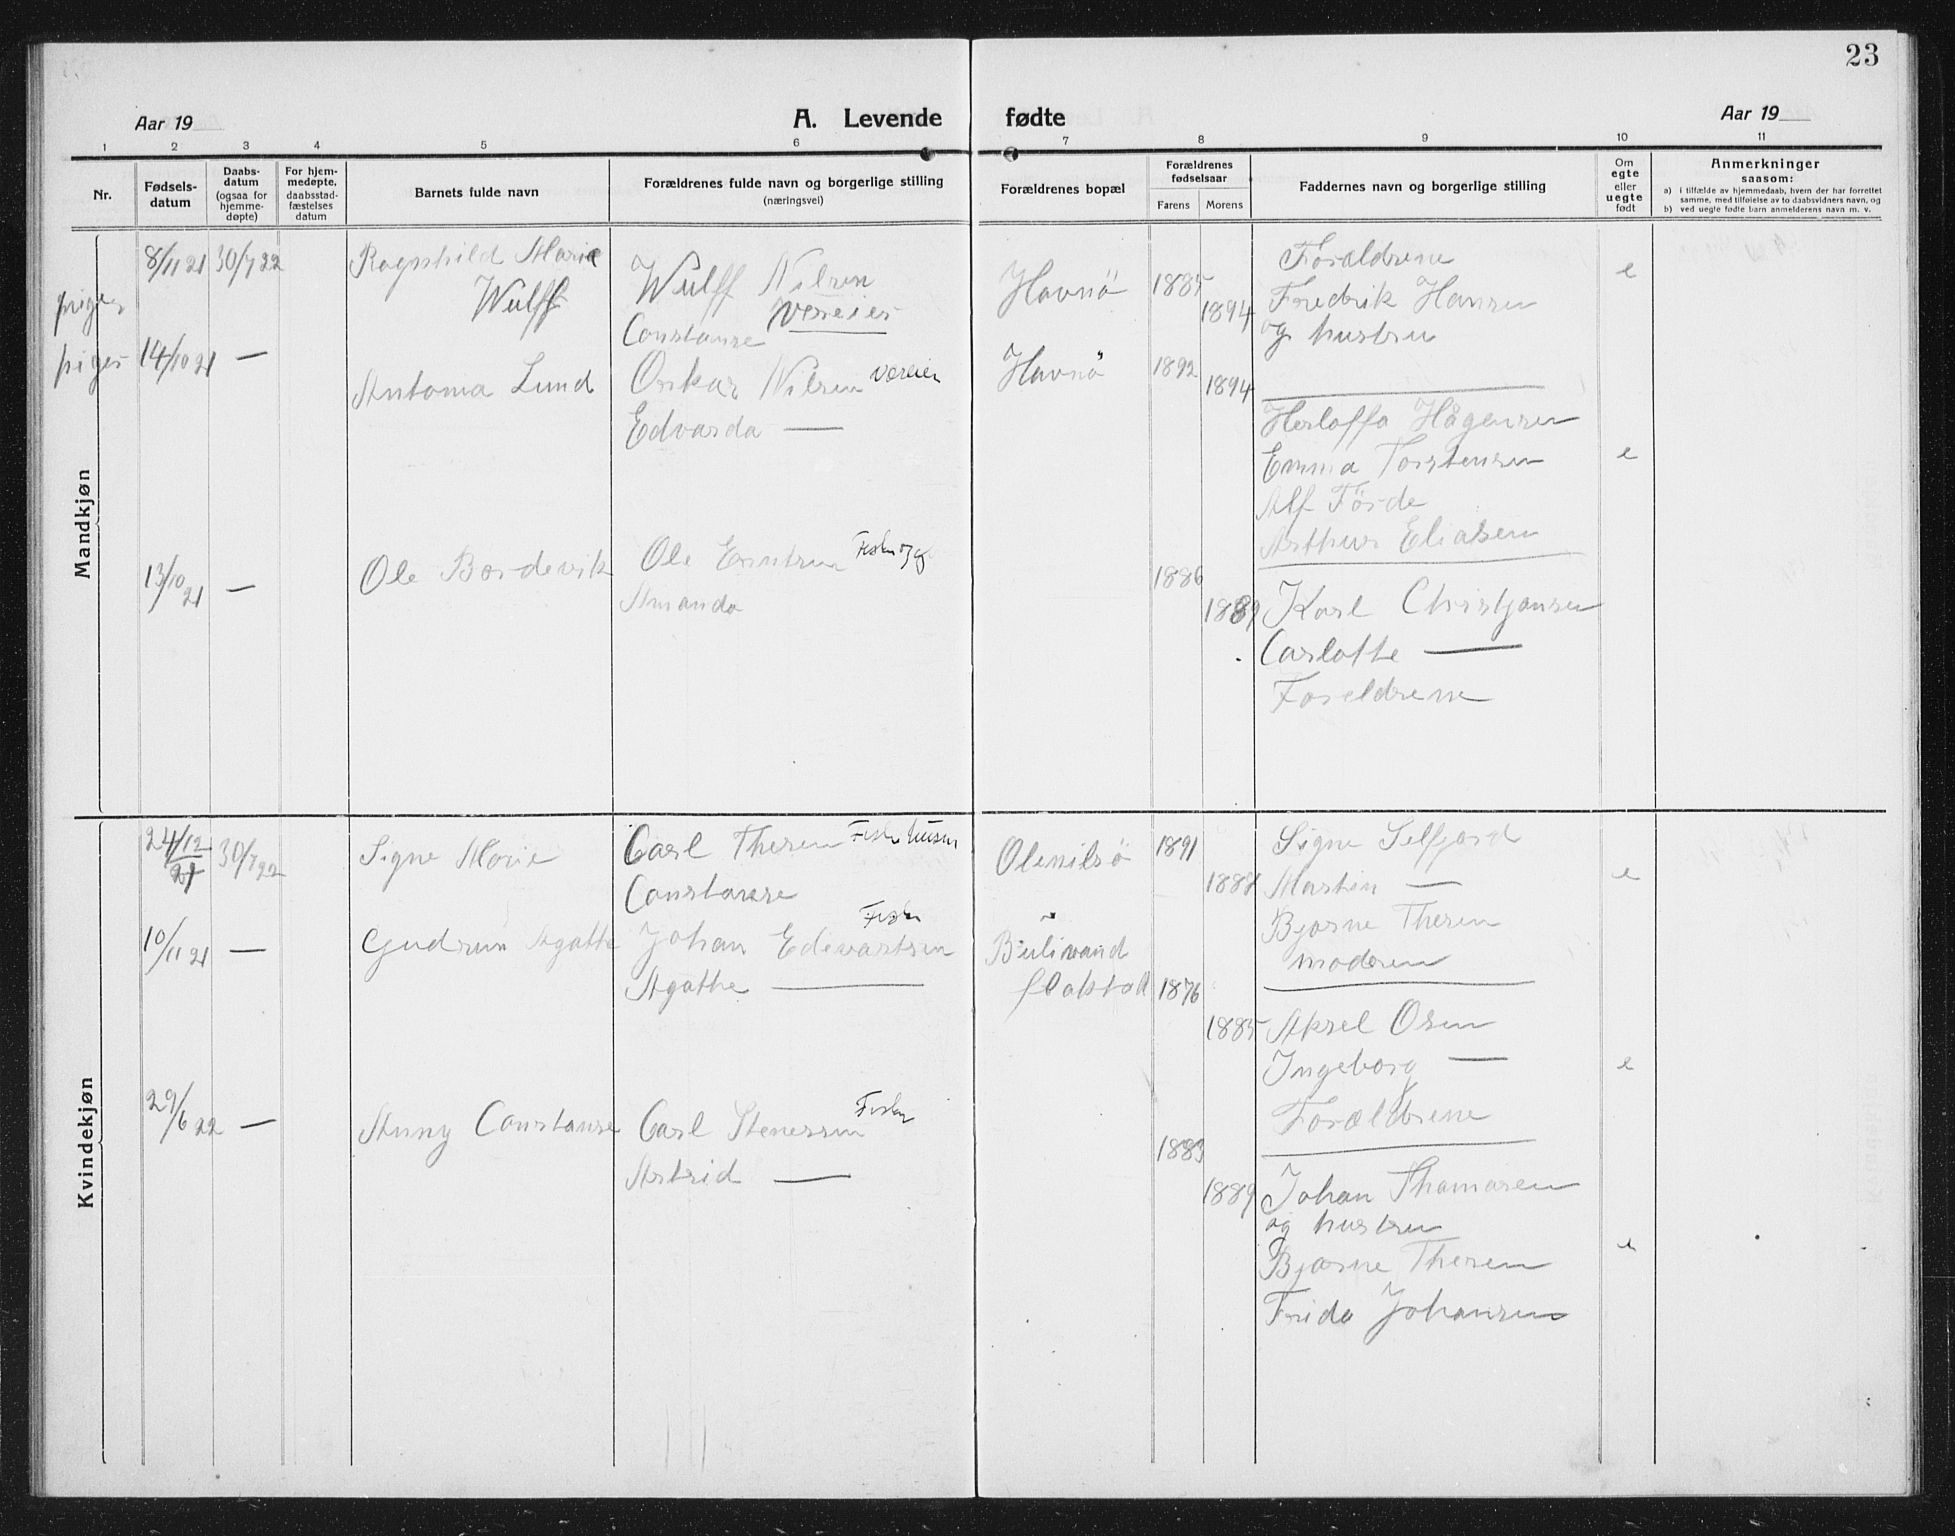 23
Aar 19
A. Levende fødte
Aar 19
1 2 3 4 5 6 7 8 9 10 11
Nr.
Fødsels-
datum
Daabs-
datum
(ogsaa for
hjemme-
døpte)
For hjem-
medøpte,
daabsstad-
fæstelses
datum
Barnets fulde navn
Forældrenes fulde navn og borgerlige stilling
(næringsvei)
Forældrenes bopæl
Forældrenes
fødselsaar
Farens Morens
Faddernes navn og borgerlige stilling
Om
egte
eller
uegte
født
Anmerkninger
saasom:
a) i tilfælde av hjemmedaab, hvem der har forrettet
samme, med tilføielse av to daabsvidners navn, og
b) ved uegte fødte barn anmelderens navn m. v.
Mandkjøn
piger
8/11 21 30/7 22
Ragnhild Marie
Wulff
Wulff Nilsen
Væreier
Constanse
Havnö
1885
1894
Forældrene
Fredrik Hansen
og hustru
e
piger
14/10 21 —
Antona Lund
Oskar Nilsen væreier
Edvarda —
Havnö
1892
1894
Herloffa Hågensen
Emma Torstensen
Alf Förde
Arthur Eliasen
e
13/10 21 —
Ole Bordevik
Ole
Amanda
1886
1889
Karl Christjansen
Carlotte —
Foreldrene
Kvindekjøn
24/12 21 30/7 22
Signe Marie
Carl Thesen Fisker
Constanse
Olenilsö
1891
1888
Signe Selfjord
Martin —
Bjarne Thesen
moderen
e
10/11 21 —
Gudrun Agathe
Johan Edevartsen Fisker
Agathe —
Flakstad
1876
1885
Aksel Osen
Ingeborg —
Forældrene
e
29/6 22 —
Anny Constanse
Carl Stenersen Fisker
Astrid —
1883
1889
Johan Thomasen
og hustru
Bjarne Thesen
Frida Johansen
e